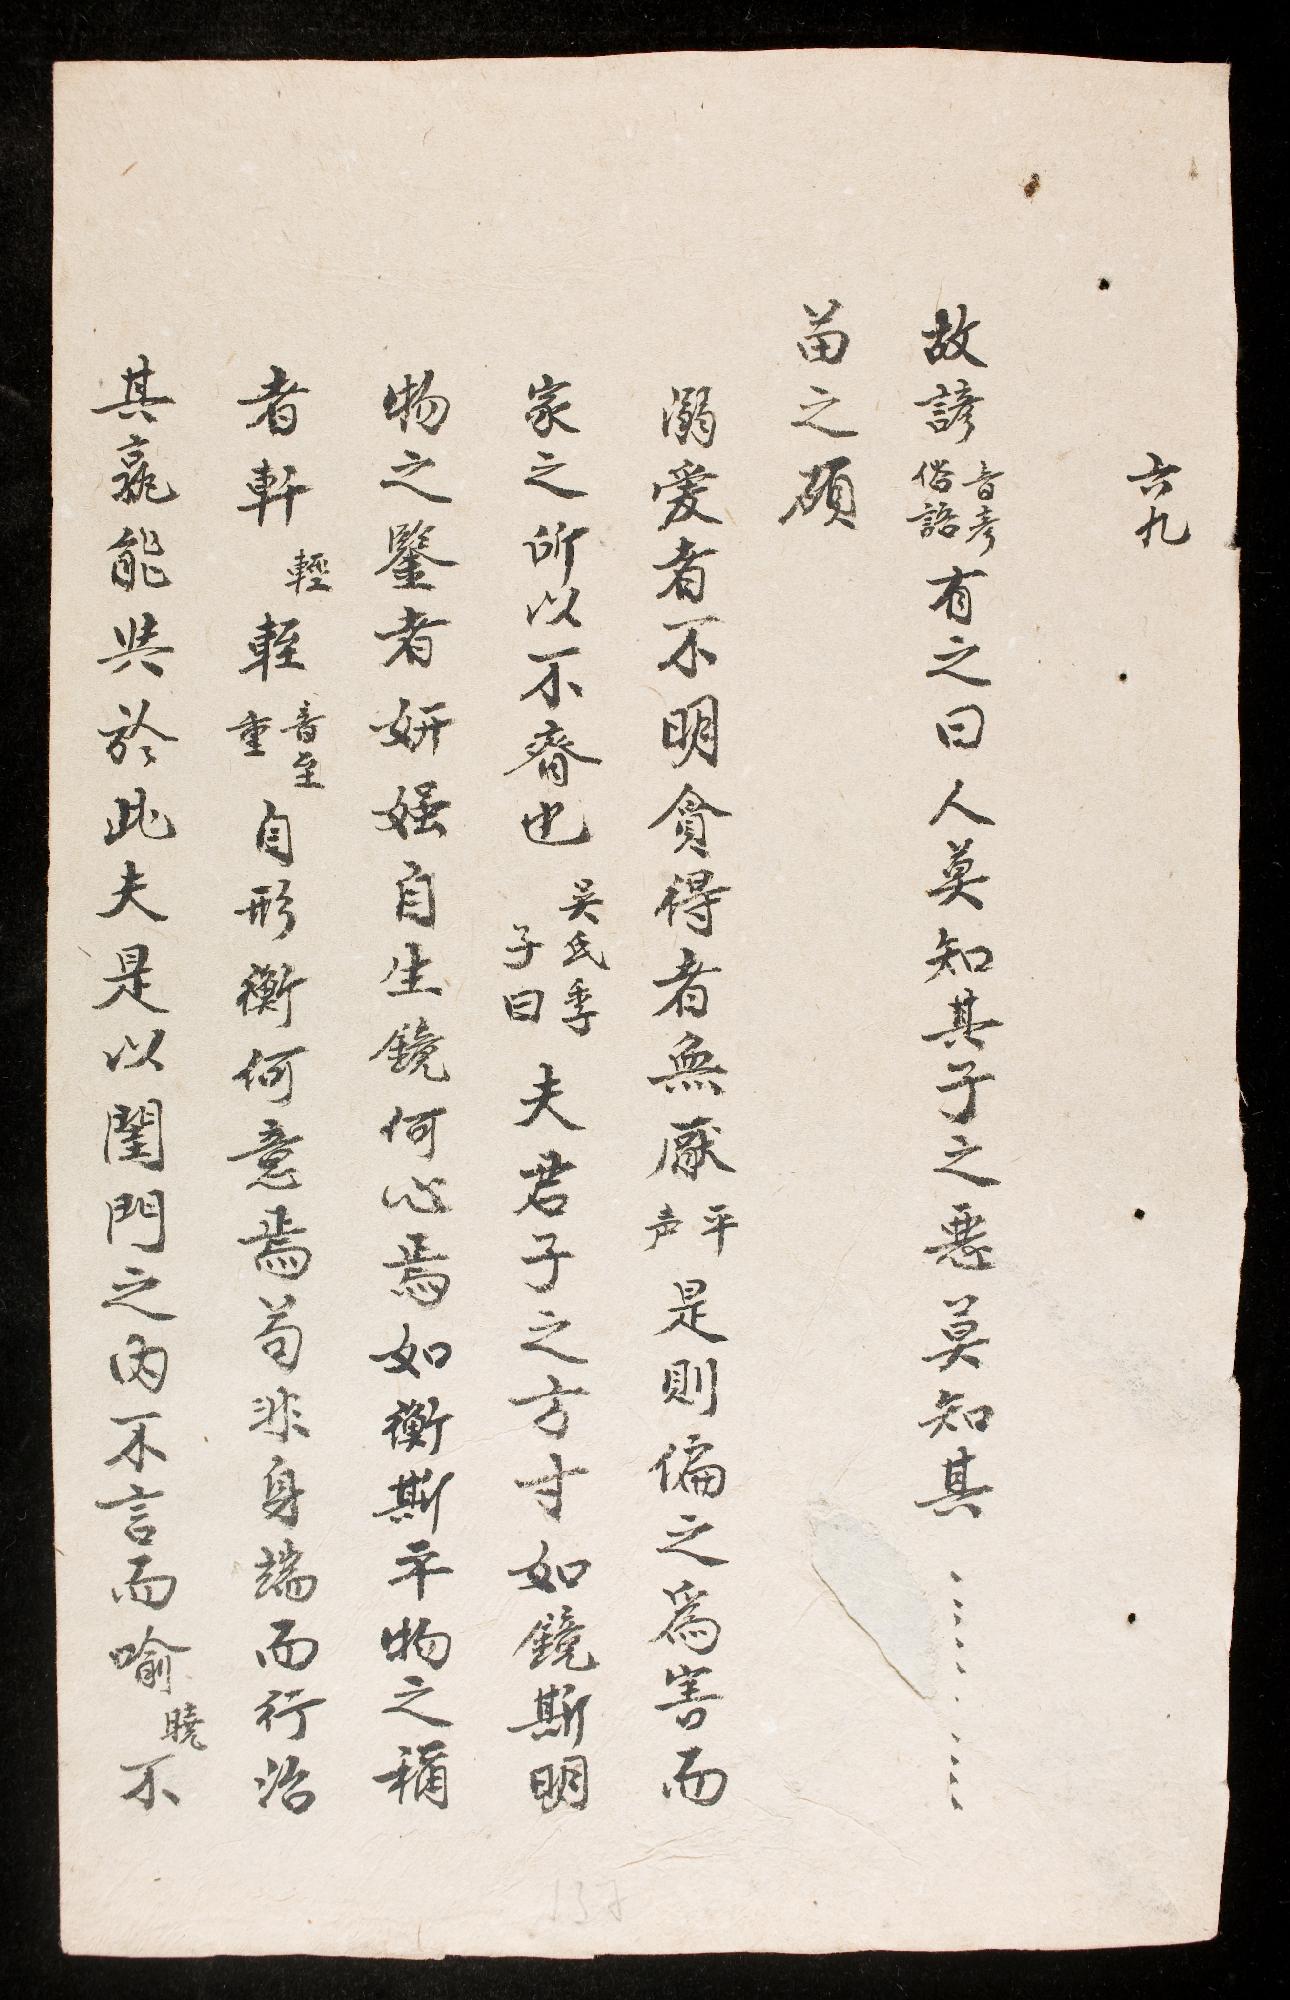 六九
故諺音彦俗語有之曰人莫知其子之惡莫知其
苗之碩
溺愛者不明貪得者無厭平声是則偏之爲害而
家之所以不齊也吳氏季子曰夫君子之方寸如鏡斯明
物之鑒者妍媸自生鏡何心焉如衡斯平物之稱
者軒輕輊音至重自形衡何意焉苟非身端而行治
其孰能與於此夫是以閨門之內不言而喻曉不